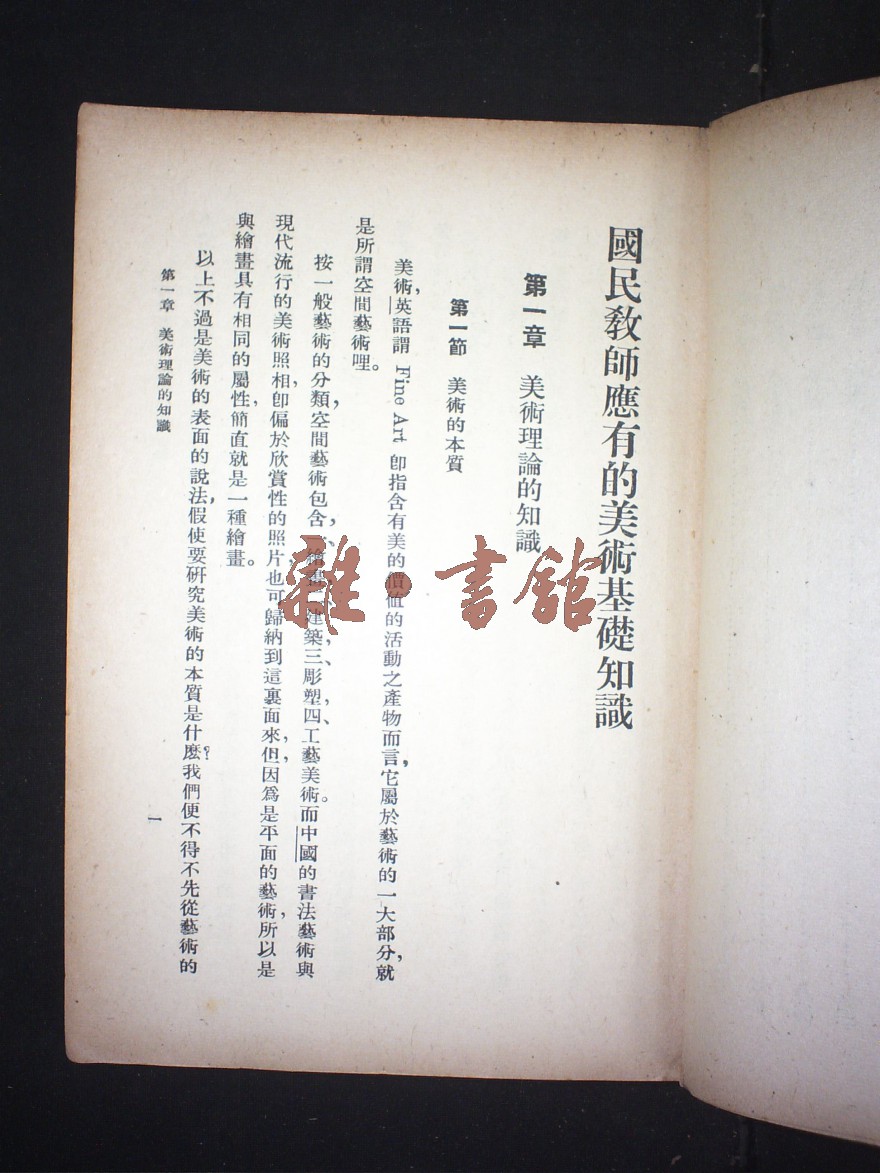 國民教師應有的美術基礎知識
第一章 美術理論的知識
第一節 美術的本質
美術,英語謂 Fine Art 卽指含有美的價值的活動之產物而言,它屬於藝術的一大部分,就
是所謂空間藝術哩。
按一般藝術的分類,空間藝術包含,、繪畫、建築,三、彫塑,四、工藝美術。而中國的書法藝術與
現代流行的美術照相,卽偏於欣賞性的照片,也可歸納到這裏面來,但因爲是平面的藝術,所以是
與繪畫具有相同的屬性,簡直就是一種繪畫。
以上不過是美術的表面的說法,假使要硏究美術的本質是什麽?我們便不得不先從藝術的
第一章 美術理論的知識
一
雜·書館